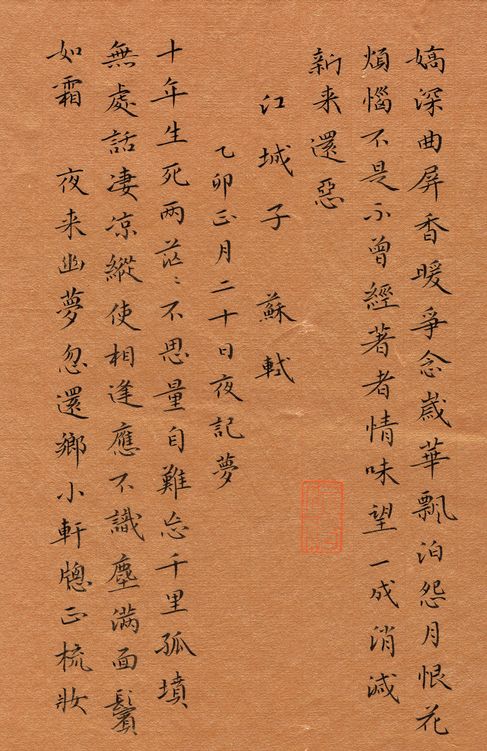 嬌深曲屏香暖爭念歲華飄泊怨月恨花
煩惱不是不曾經著者情味望一成消減
新来還惡
江城子 蘇軾
乙卯正月二十日夜記夢
十年生死兩茫〻不思量自難忘千里孤墳
無處話凄凉縱使相逢應不識塵滿面鬢
如霜 夜来幽夢忽還鄉小軒牕正梳妝